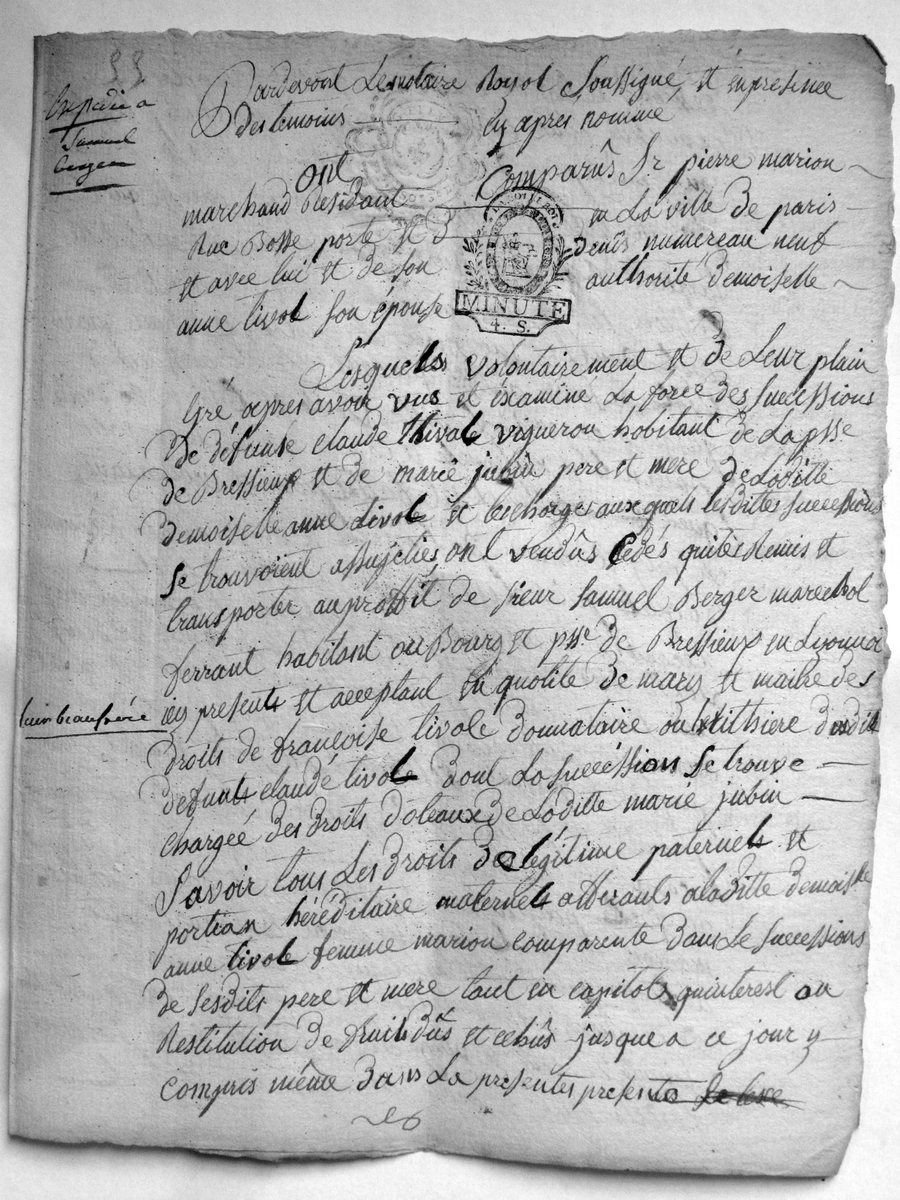 55
Expedié a
Samuel
Berger
Pardevant Le notaire Royal Soussigné, et en presence
des temoins en apres nommé
ont Comparûs Sr. pierre marion
marchand Residant en La ville de paris
Rue Basse porte st denis numereau neuf
et avec lui et de son authorité demoiselle
anne tivol son epouse
MINUTE
4. S.
Lesquels volontairement et de Leur plain
Gré apres avoir vus et examiné La force des successions
De défunt claude thivol vigneron habitant de La psse
de Bressieux et de marie jubin pere et mere de Laditte
demoiselle anne tivol et les charges aux quels lesdittes successions
se trouvoient assujeties, ont vendûs Cedés quités Remis et
transporter au proffit de sieur Samuel Berger marechal
ferrant habitant au Bourg et psse de Bressieux en Lyonnai
icy present et acceptant en qualité de mary et maitre des
Leur beaufrere
droits de françoise tivole donnataire ou heritiere dudit
defunt claude tivol dont La succéssion se trouve
chargeé des droits dotaux de Laditte marie jubin
Savoir tous Les droits de légitime paternels et
portion héréditaire maternels afferants a laditte demoiselle
anne tivole femme marion comparente dans Le successions
de sesdits pere et mere tant en capital qu'interest ou
Restitution de fruits dûs et echûs jusque a ce jour y
compris même dans La presentes presentes